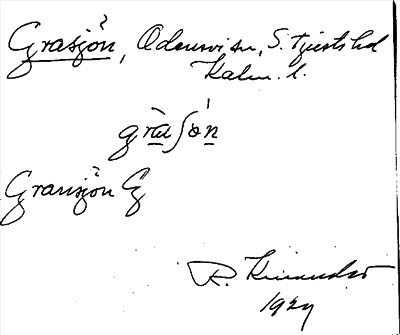 Grasjön, Odensvi sn, S. Tjusts hd
Kalm. l.
gràʃö́n
Gransjön Eg
R. Kinander
1929